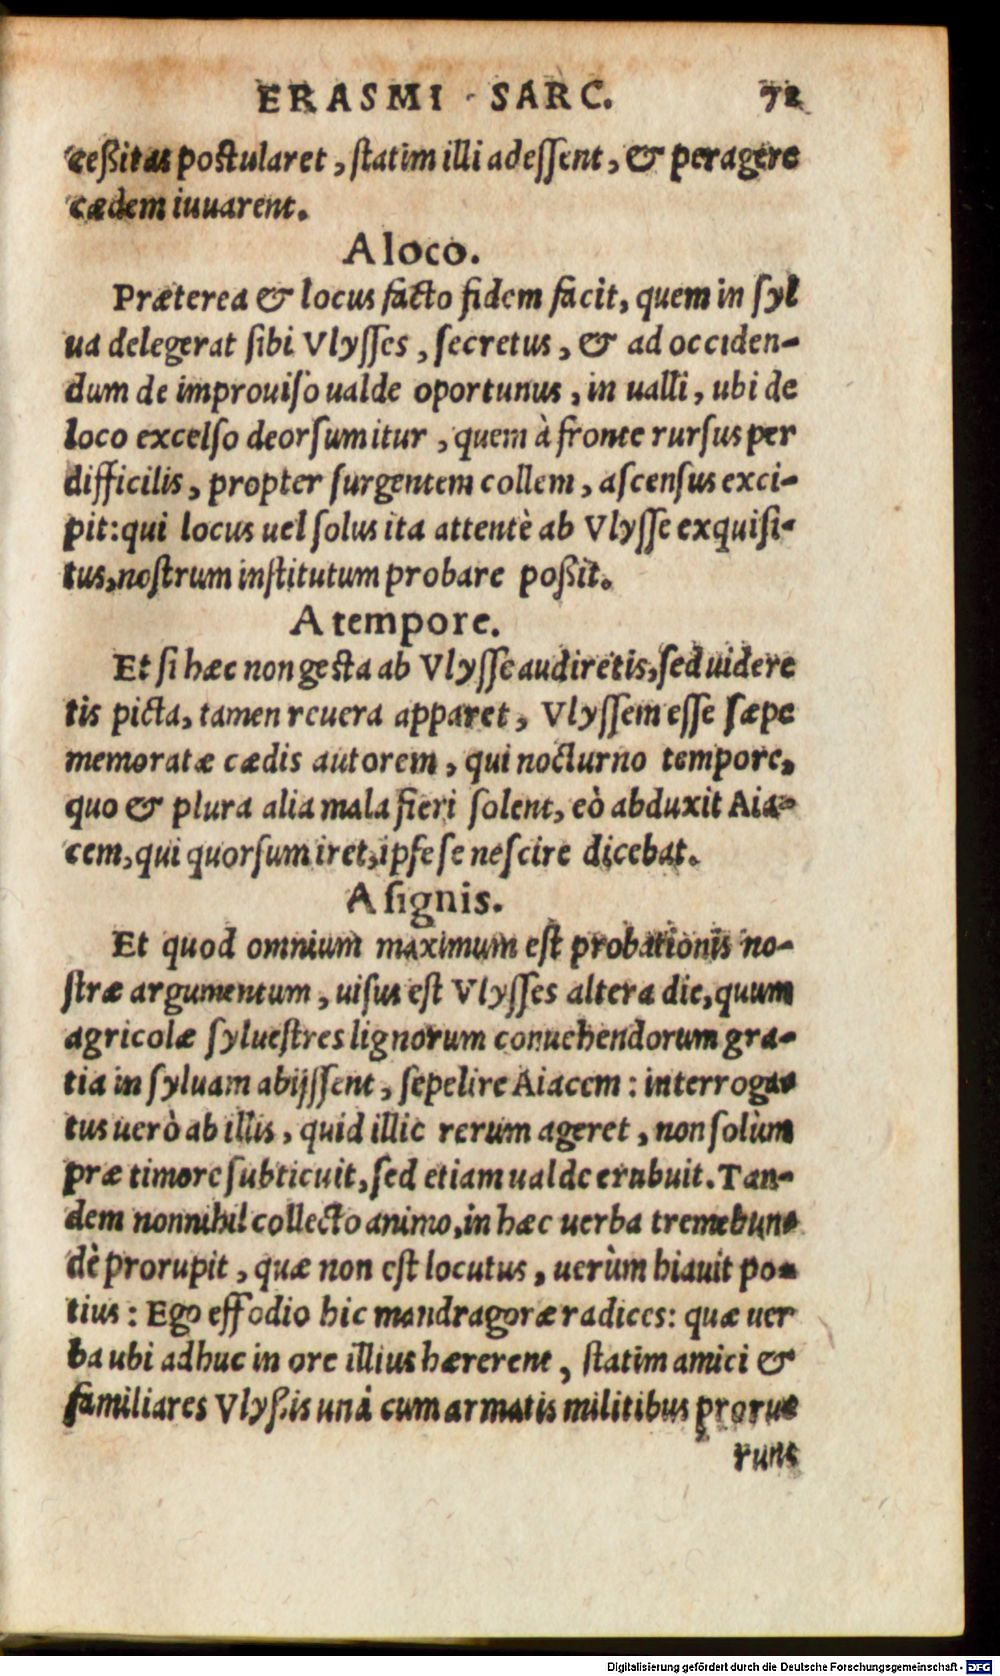 ERASMI SARC. 72
ceßitas postularet, statim illi adessent, & peragere
cædem iuuarent.
A loco.
Præterea & locus facto fidem facit, quem in syl
ua delegerat sibi Vlysses, secretus, & ad occiden-
dum de improuiso ualde oportunus, in ualli, ubi de
loco excelso deorsum itur, quem à fronte rursus per
difficilis, propter surgentem collem, ascensus exci-
pit: qui locus uel solus ita attentè ab Vlysse exquisi-
tus, nostrum institutum probare poßit.
A tempore.
Et si hæc non gesta ab Vlysse audiretis, sed uidere
tis picta, tamen reuera apparet, Vlyssem esse sæpe
memoratæ cædis autorem, qui nocturno tempore,
quo & plura alia mala fieri solent, eò abduxit Aia-
cem, qui quorsum iret, ipse se nescire dicebat.
A signis.
Et quod omnium maximum est probationis no-
stræ argumentum, uisus est Vlysses altera die, quum
agricolæ syluestres lignorum conuehendorum gra-
tia in syluam abijssent, sepelire Aiacem: interroga-
tus uerò ab illis, quid illic rerum ageret, non solùm
præ timore subticuit, sed etiam ualde erubuit. Tan-
dem nonnihil collecto animo, in hæc uerba tremebun-
dè prorupit, quæ non est locutus, uerùm hiauit po-
tius: Ego effodio hic mandragoræ radices: quæ uer
ba ubi adhuc in ore illius hærerent, statim amici &
familiares Vlyßis unà cum armatis militibus prorue
runt
Digitalisierung gefördert durch die Deutsche Forschungsgemeinschaft - DFG